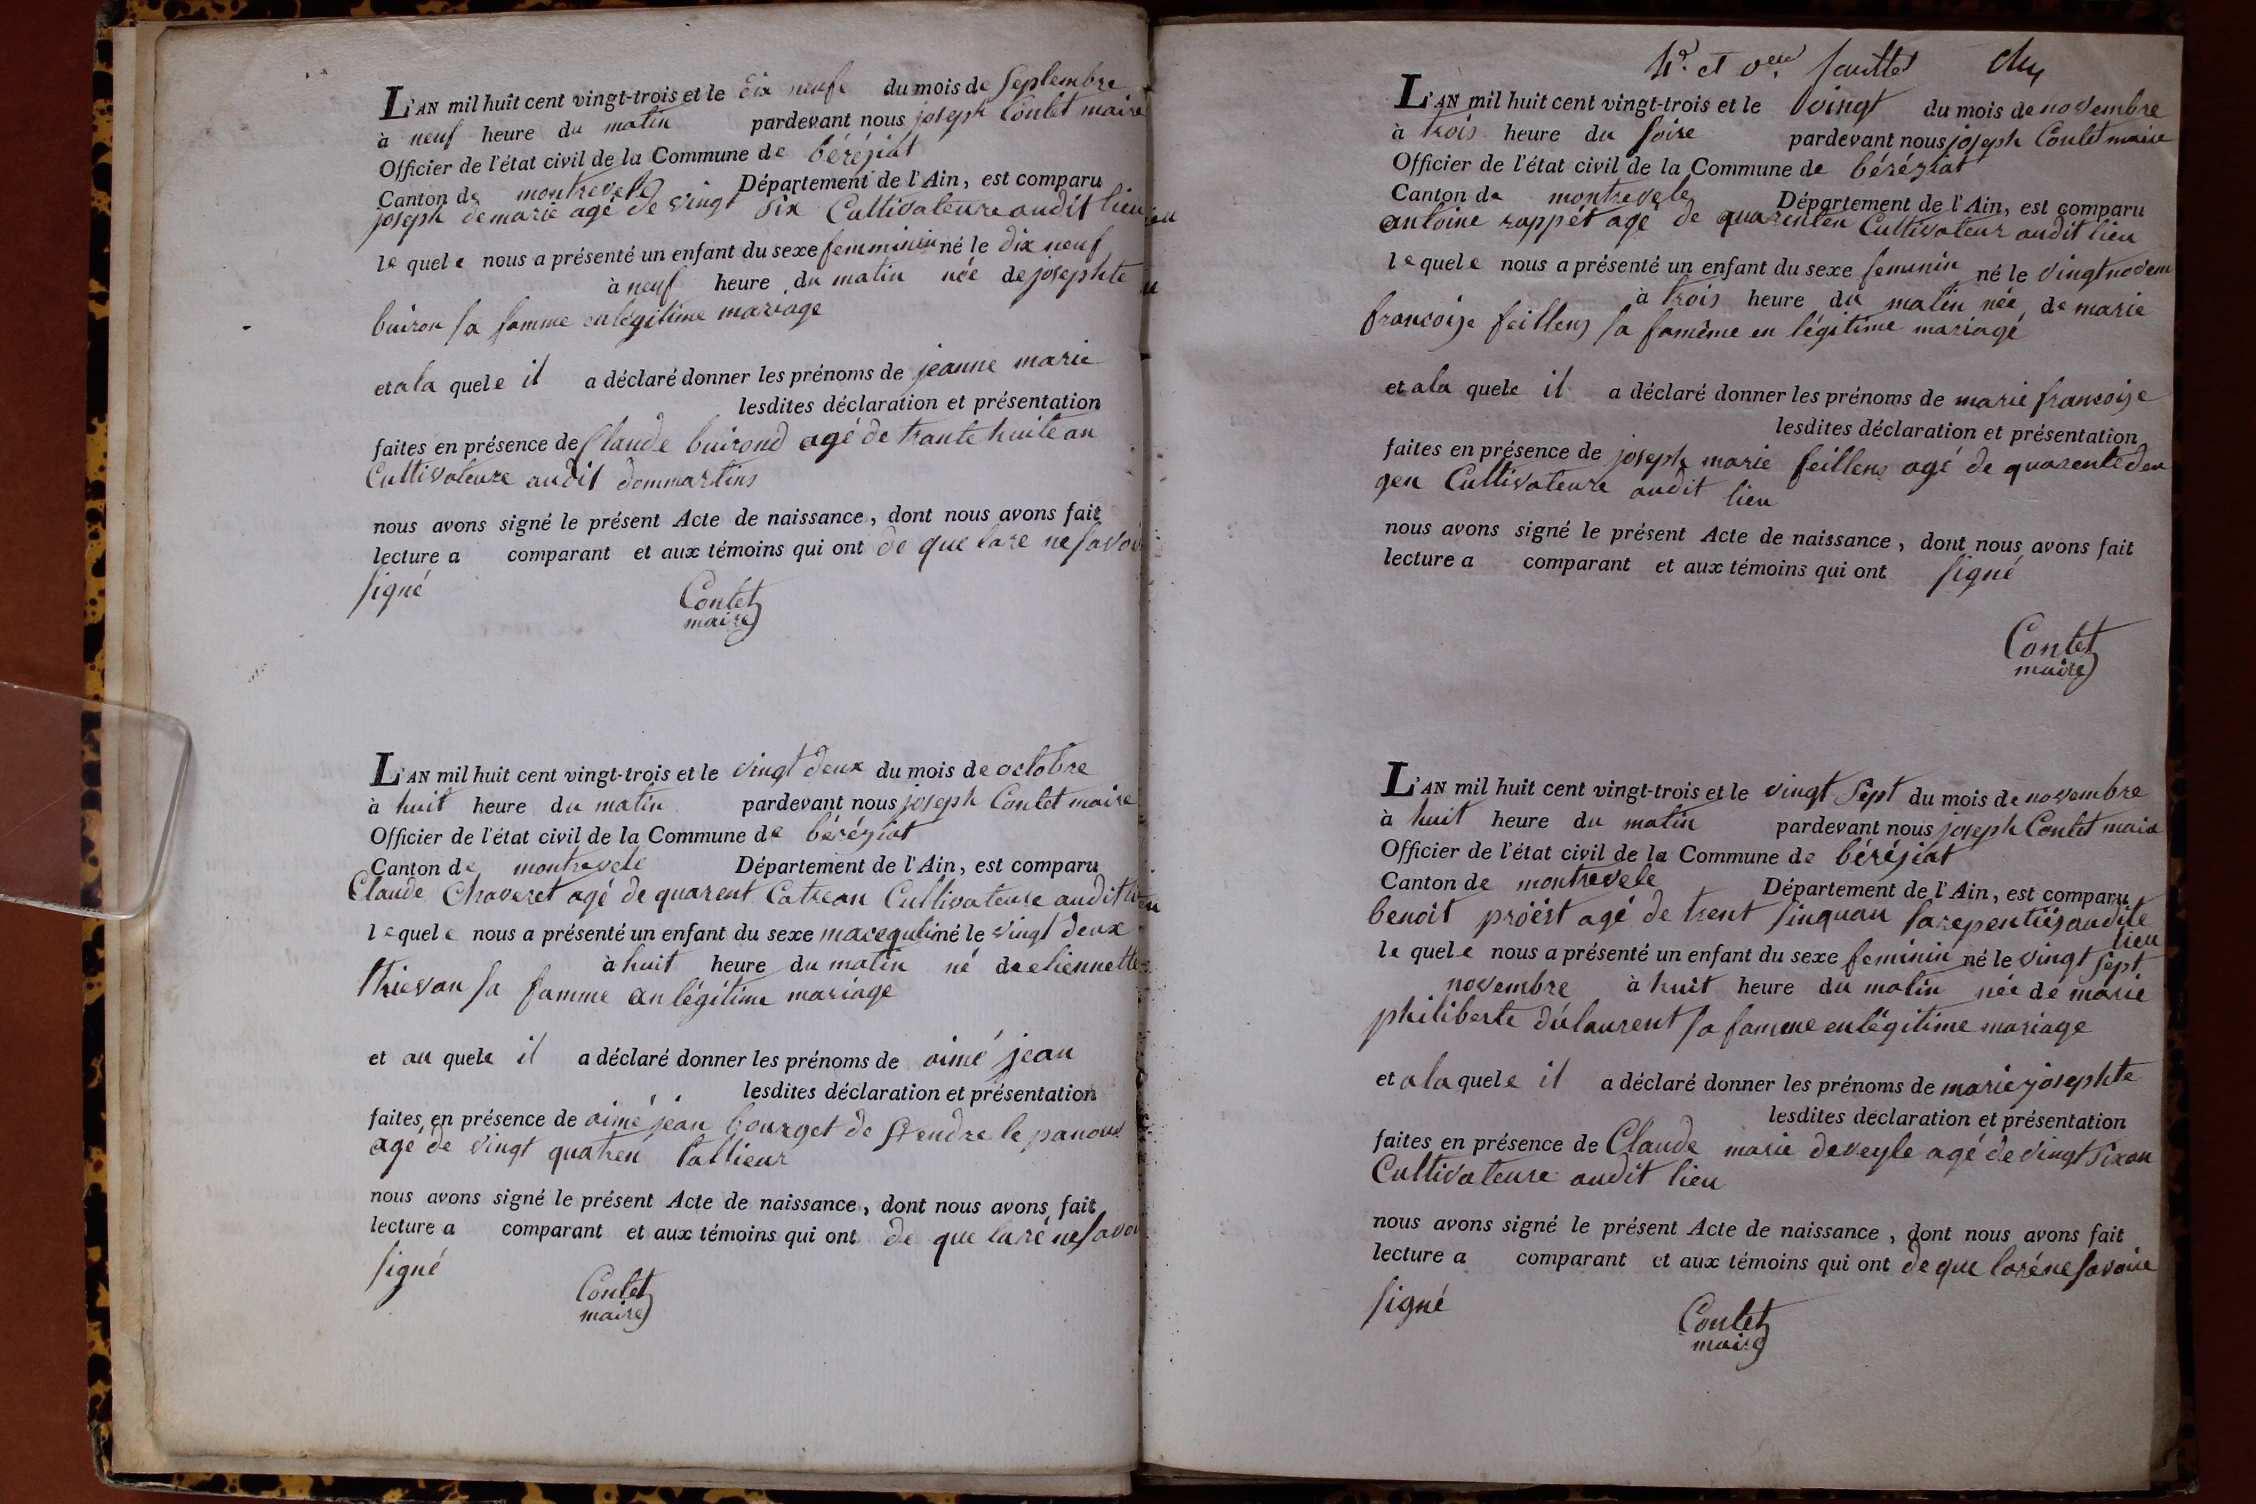 L'AN mil huit cent vingt-trois et le dix neufe du mois de Septembre
à neuf heure du matin pardevant nous joseph Contet maire
Officier de l'état civil de la Commune de béréziat
Canton de montrevele Département de l'Ain, est comparu
joseph demarie agé de vingt six Cultivateure audit lieu
le quele nous a présenté un enfant du sexe femminin né le dix neuf
à neuf heure du matin née de josephte
buiron sa famme en légitime mariage
et a la quele il a déclaré donner les prénoms de jeanne marie
lesdites déclaration et présentation
faites en présence de Claude buirond agé de trante huite an
Cultivateure audit dommartins
nous avons signé le présent Acte de naissance, dont nous avons fait
lecture a comparant et aux témoins qui ont de que lare ne savoi
signé
Contet
maire
L'AN mil huit cent vingt-trois et le vingt deux du mois de octobre
à huit heure du matin pardevant nous joseph Contet maire
Officier de l'état civil de la Commune de béréziat
Canton de montrevele Département de l'Ain, est comparu
Claude Chaveret agé de quarent Catrean Cultivateure audit lieu
le quele nous a présenté un enfant du sexe macequlin né le vingt deux
à huit heure du matin né de etiennette
thievan sa famme an légitime mariage
et au quele il a déclaré donner les prénoms de aimé jean
lesdites déclaration et présentation
faites en présence de aimé jean bourget de St endre le panoux
agé de vingt quatren tallieur
nous avons signé le présent Acte de naissance, dont nous avons fait
lecture a comparant et aux témoins qui ont de que laré ne savoi
signé
Contet
maire
4e. et feuillet
L'AN mil huit cent vingt-trois et le vingt du mois de novembre
à trois heure du soire pardevant nous joseph Contet maire
Officier de l'état civil de la Commune de béréziat
Canton de montrevele Département de l'Ain, est comparu
antoine rappet agé de quarenten Cultivateur audit lieu
le quele nous a présenté un enfant du sexe feminin né le vingt novem
à trois heure du matin née de marie
francoise feillens sa famême en légitime mariagé
et a la quele il a déclaré donner les prénoms de marie francoise
lesdites déclaration et présentation
faites en présence de joseph marie feillens agé de quarente deu
gen Cultivateure audit lieu
nous avons signé le présent Acte de naissance, dont nous avons fait
lecture a comparant et aux témoins qui ont signé
Contet
maire
L'AN mil huit cent vingt-trois et le vingt Sept du mois de novembre
à huit heure du matin pardevant nous joseph Contet maire
Officier de l'état civil de la Commune de béréjiat
Canton de montrevele Département de l'Ain, est comparu
benoit proést agé de trent sinquan sarepentiés audite
lieu
le quele nous a présenté un enfant du sexe feminin né le vingt sept
novembre à huit heure du matin née de marie
philiberte dulaurent sa famme en légitime mariage
et a la quele il a déclaré donner les prénoms de marie josephte
lesdites déclaration et présentation
faites en présence de Claude marie deveyle agé de vingt sixan
Cultivateure audit lieu
nous avons signé le présent Acte de naissance, dont nous avons fait
lecture a comparant et aux témoins qui ont de que laré ne savoire
signé
Contet
maire